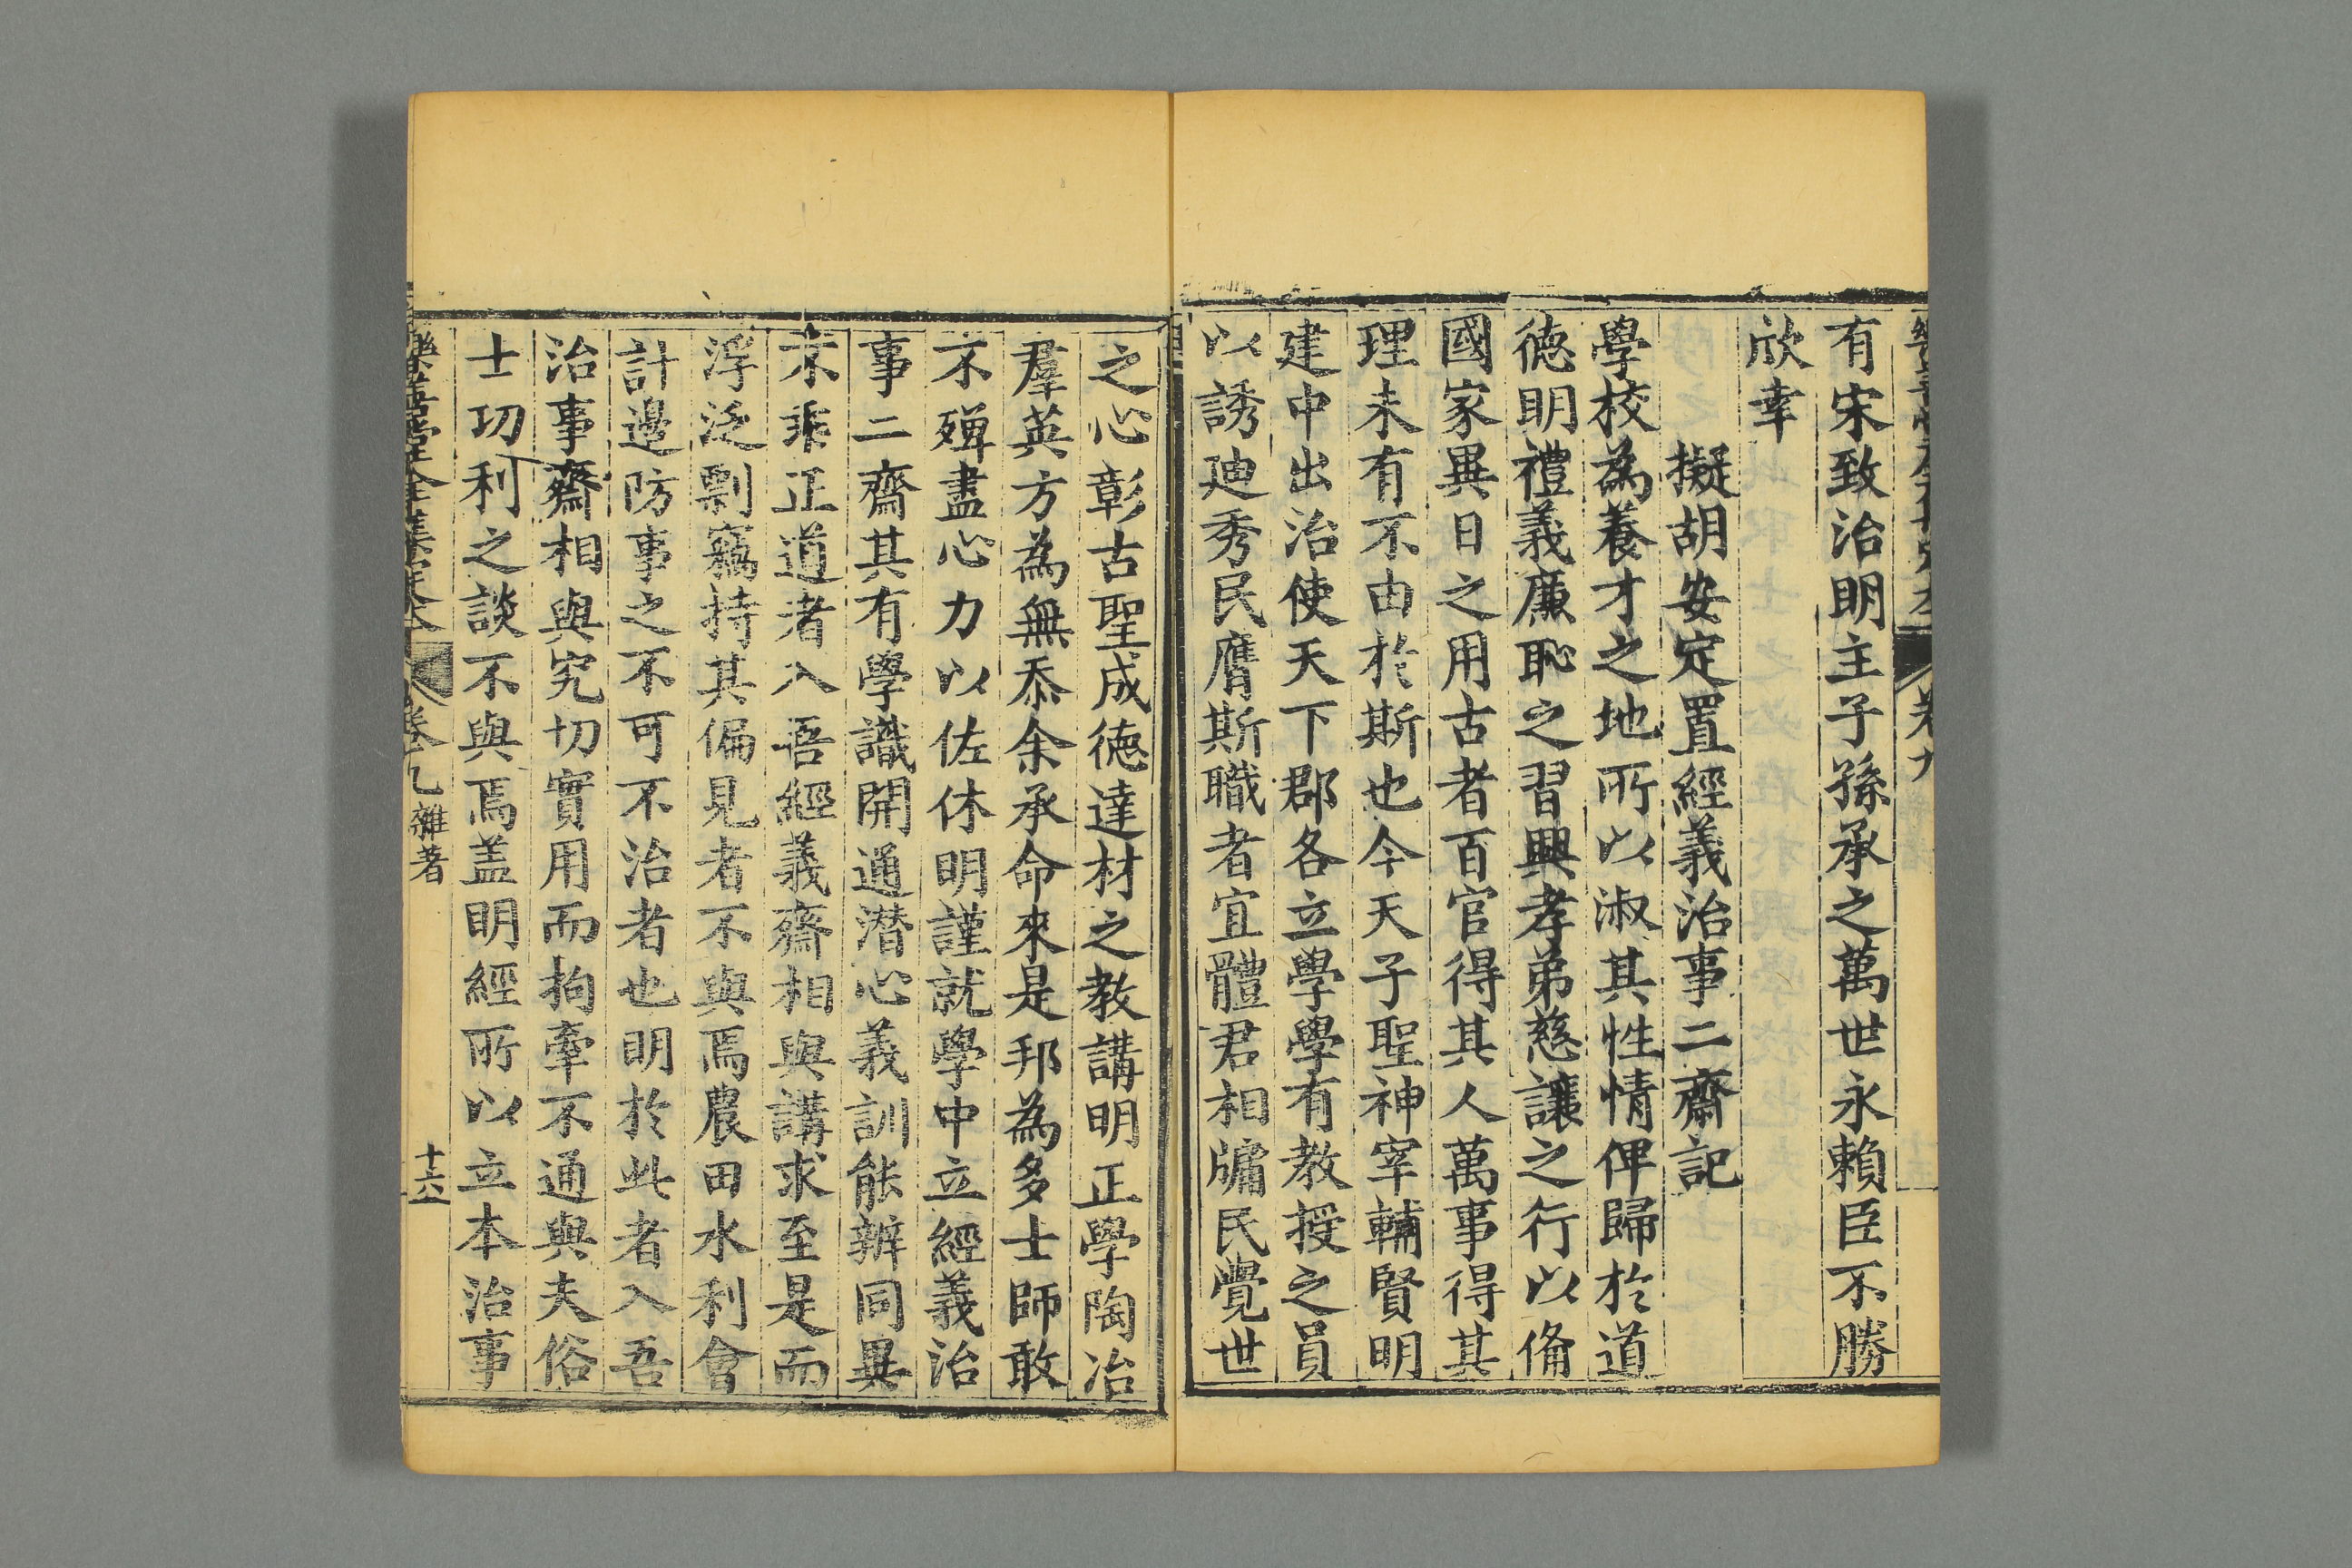 有宋致治明主子孫承之萬世永賴臣不勝
欣幸
擬胡安定置經義治事二齋記
學校為養才之地所以淑其性情俾歸於道
徳明禮義廉恥之習興孝弟慈讓之行以偹
國家異日之用古者百官得其人萬事得其
理未有不由於斯也今天子聖神宰輔賢明
建中出治使天下郡各立學學有教授之員
以誘廸秀民膺斯職者宜體君相牖民覺世
之心彰古聖成徳達材之教講明正學陶冶
羣英方為無忝余承命來是邦為多士師敢
不殫盡心力以佐休明謹就學中立經義治
事二齋其有學識開通潛心義訓能辨同異
不乖正道者入吾經義齋相與講求至是而
浮泛剽竊持其偏見者不與焉農田水利會
計邊防事之不可不治者也明於此者入吾
治事齋相與究切實用而拘牽不通與夫俗
士功利之談不與焉盖明經所以立本治事
樂善堂全集定本
卷九
雜著
十六